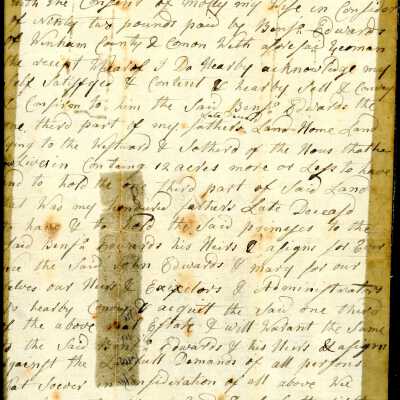 with the Consent of molly my wife in Consider
of Ninty two pounds paid by Benjn Edwards
of Winham County & Conon Welth aforesaid Yeoman
the recept Whearof I Do Hearby acknowledge my
self Satisfyed & Content & hearby Sell & Convey
& Confirm to him the Said Benjn Edwardes the
one third part of my fathers Land Home Land
Late
lying to the Westward & Sotherd of the Hous that he
Livd in Containg 12 acres more or Less to have
and to hold the one third part of Said Land
that was my honoured fathers Late Deceasd
to have & to hold the Said primeses to the
Said Benjn Edwards his Heirs & asigns for Ever
we the Said John Edwards & mary for our
selves our Heirs & Execejors & Administrators
Do hearby Convey & acquitt the Said one third
of the above Said Estate & will Warant the Same
to the Said Benjn Edwards & his Heirs & asigns
against the Lawfull Demands of all persons
that Soever in Consideration of all above We